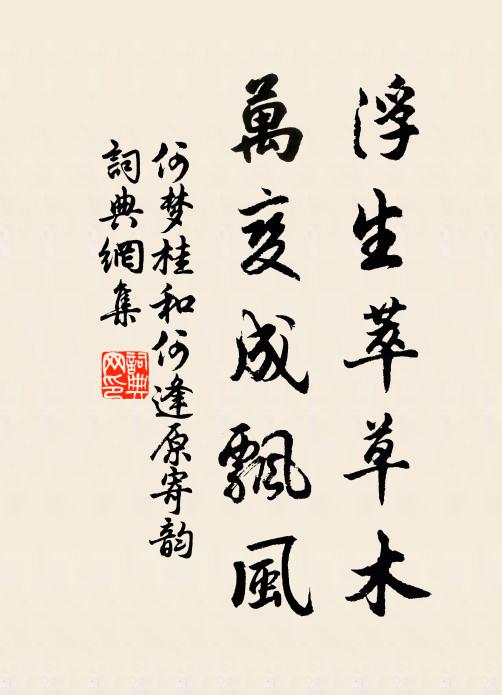 浮生萃草木
萬变成飄風
何梦桂和何逢原寄韵
詞典網集
詞典网印